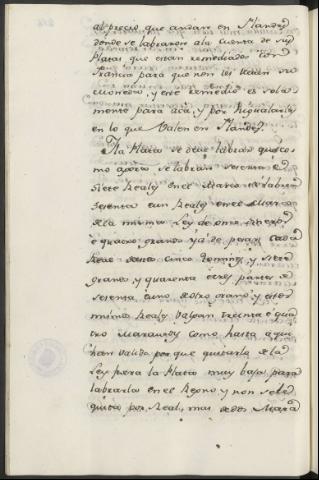 al precio que andan en Flandes
donde se labraron ala cuenta de sus
Platas que estan remediados con
Francia para que non les lleven su
moneda, y este remedio es sola
mente para acá, y por higualarla
en lo que Valen en Flandes.
La Plata se deve labrar que co
mo agora se labran sesenta e
siete Reales en el Marco se labren
setenta eun Reales en el Marco
dela misma Ley de onze dineros
e quatro granos ya de pesar cada
Real cinco tomines, y siete
granos, y quarenta etres partes de
setenta euno de otro grano, y estos
mismos Reales valgan treinta e qua
tro Maravedis como hasta aqui
han valido, por que quitarla dela
Ley fuera la Plata muy baja para
labrarla en el Reyno, y non sele
quita por Real, mas dedos Marav